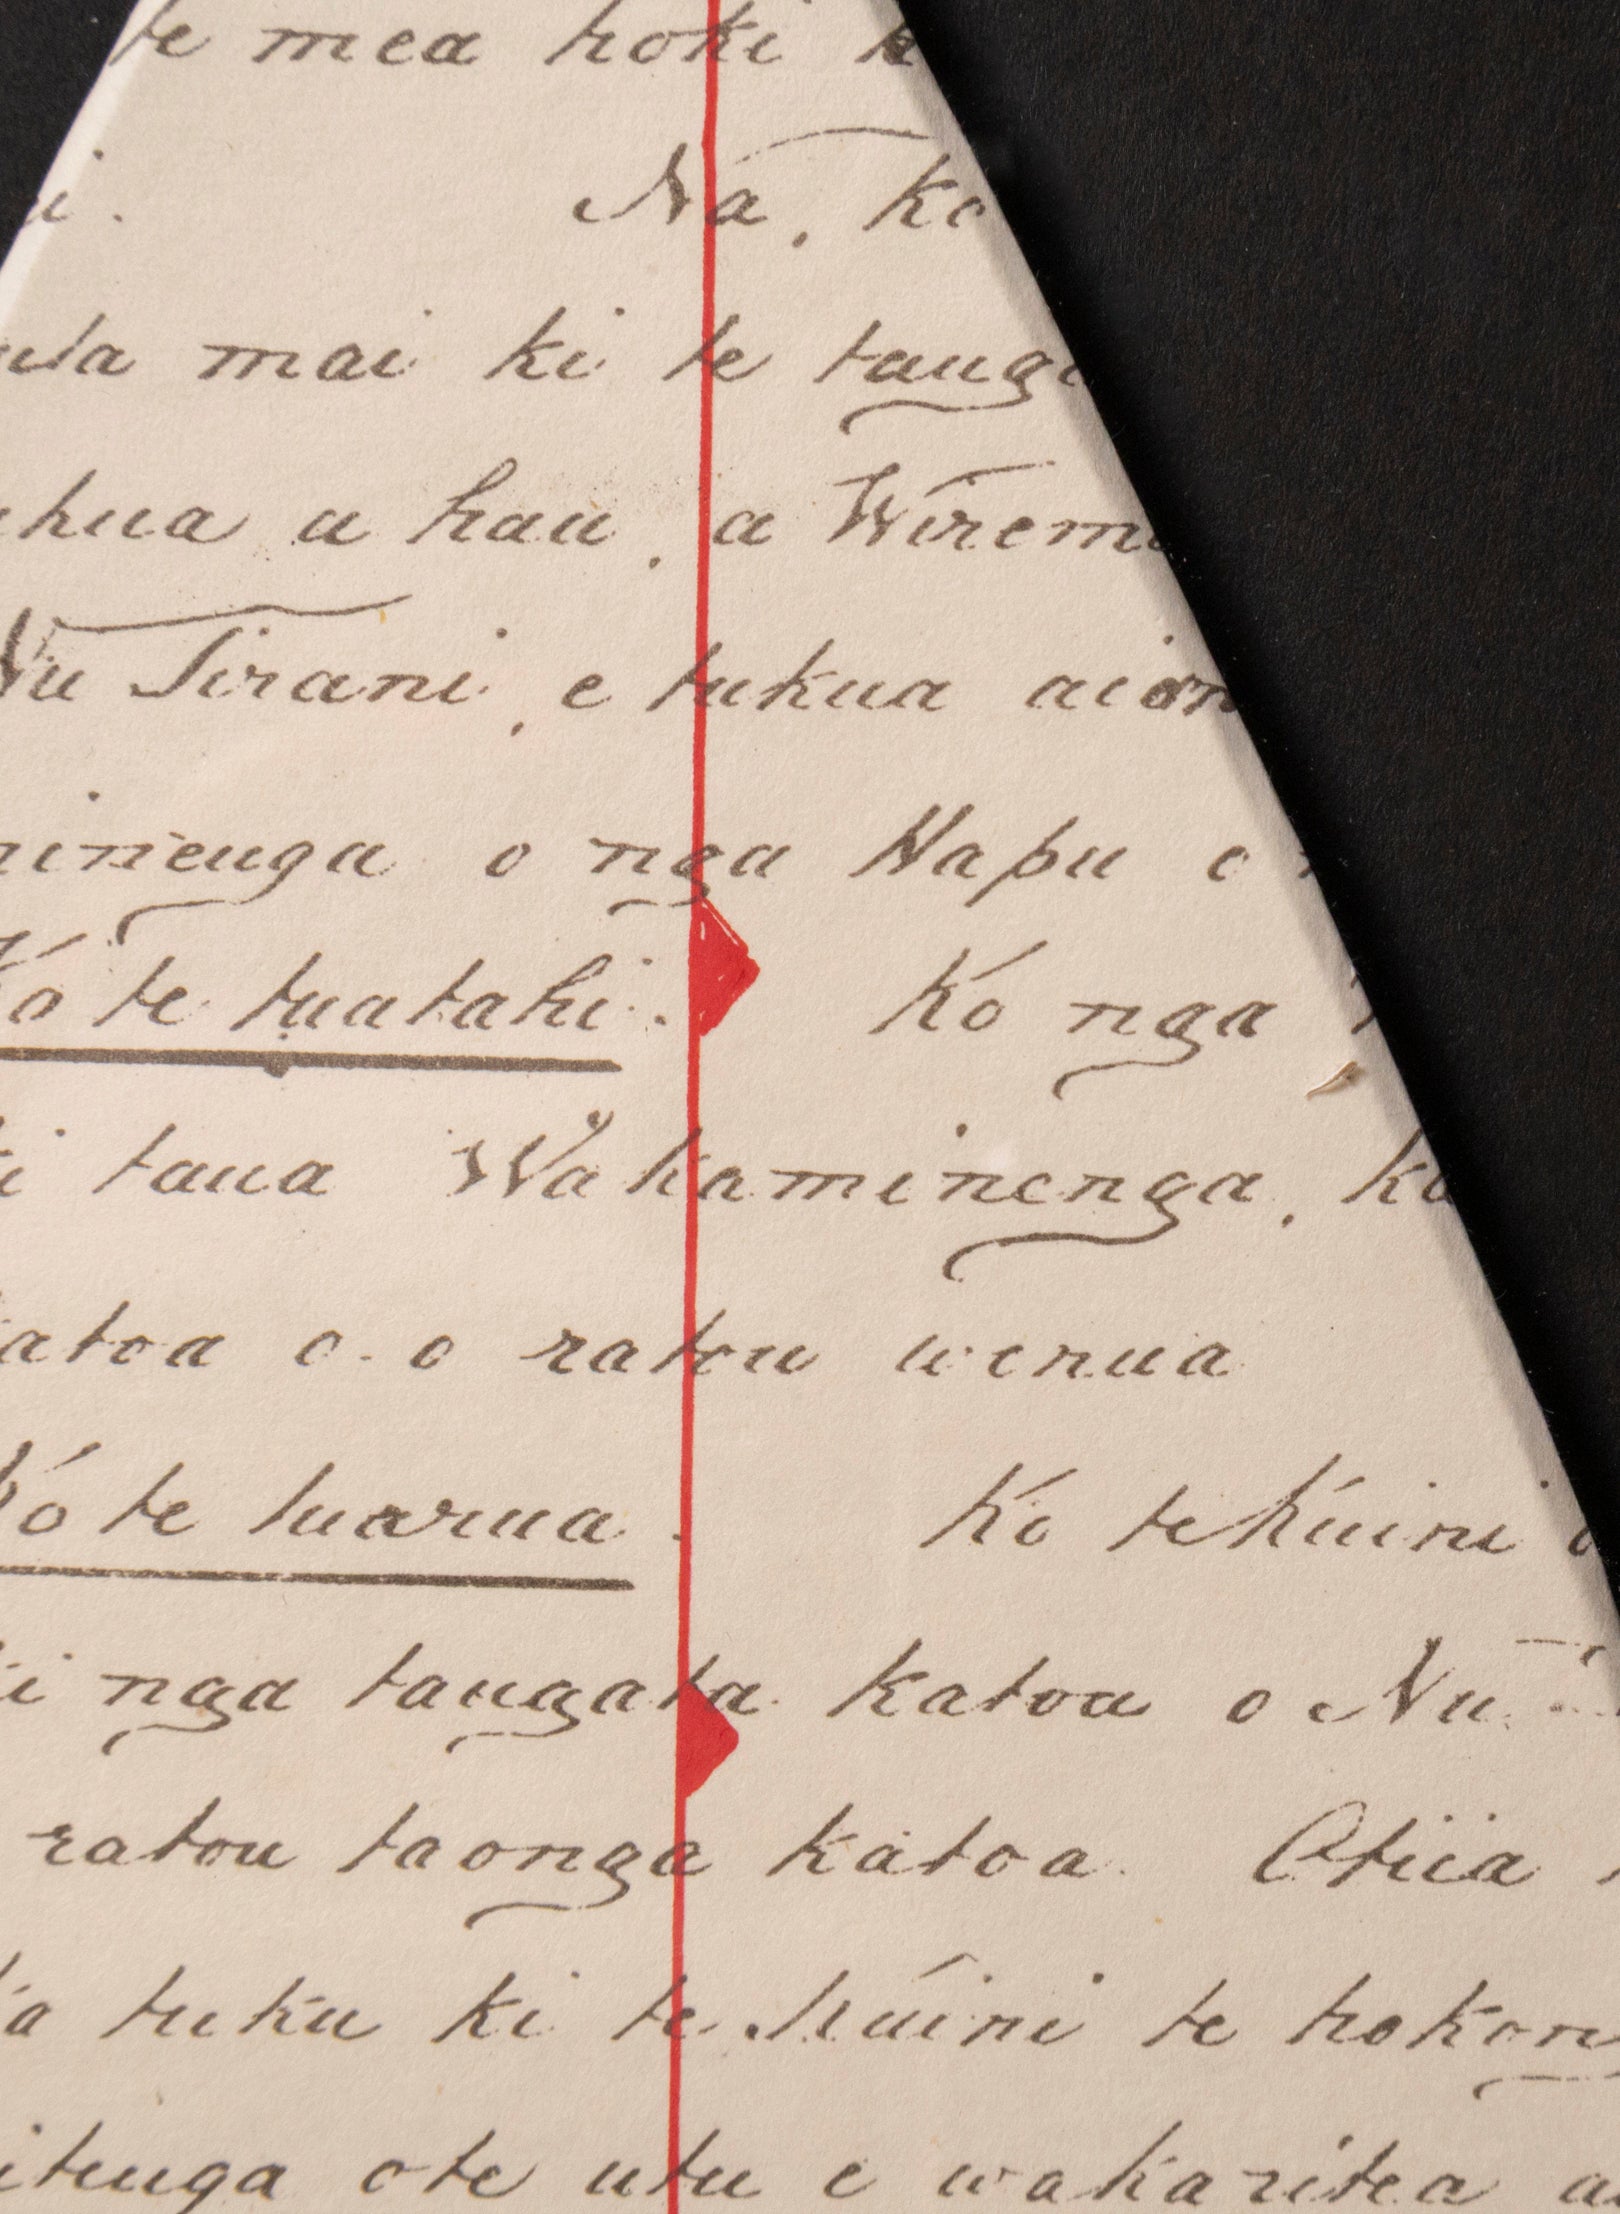 te mea hoki k
i. Na, ko
uta mai ki te tanga
ukua a hau, a Wiremu
Nu Tirani, e tukua aian
minenga o nga Hapu o
Ko te tuatahi. Ko nga
ki taua Wakaminenga, ka
katoa o o ratou wenua
Ko te tuarua. Ko te Kuini o
ki nga tangata katoa o Nu
ratou taonga katoa. Otiia
ka tuku ki te Kuini te hokon
itenga o te utu e wakaritea ai